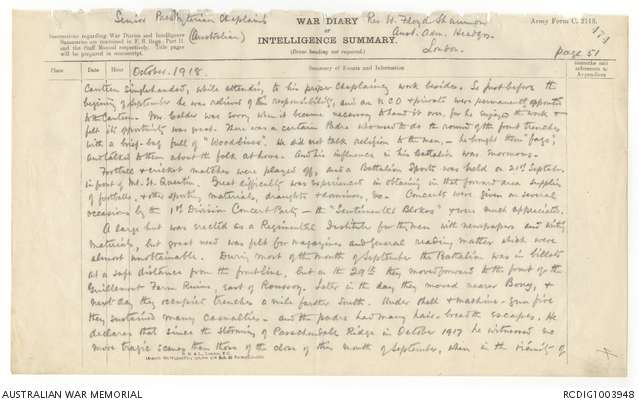 Senior Presbyterian Chaplain
(Australian)
WAR DIARY
or
INTELLIGENCE SUMMARY.
(Erase heading not required.)
Rev. W. Floyd Shannon
Aust. Adm. Headqrs.
London.
Army Form C. 2118.
Page 51
Instructions regarding War Diaries and Intelligence
Summaries are contained in F. S. Regs., Part II.
and the Staff Manual respectively. Title pages
will be prepared in manuscript.
Place
Date
Hour
Summary of Events and Information
Remarks and
references to
Appendices
October. 1918.
Canteen singlehanded, while attending to his proper Chaplaincy work besides. So just before the
beginning of September he was relieved of this responsibility, and an N.C.O + private were permanently appointed
to the Canteen. Mr. Calder was sorry when it became necessary to hand it over, for he enjoyed the work &
felt its opportunity was great. There was a certain Padre who used to do the round of the front trenches
with a brief-bag full of "Woodbines". He did not talk religion to the men – he brought them 'fags',
and talked to them about the folk at home. And his influence in his Battalion was enormous.
Football + cricket matches were played off, and a Battalion Sports was held on 21st September
in front of Mt. St. Quentin. Great difficulty was experienced in obtaining in that forward area supplies
of footballs, + other sporting materials, draughts + dominoes, &c. Concerts were given on several
occasions by the 1st Division Concert Party – the "Sentimental Blokes" were much appreciated.
A large hut was erected as a Regimental Institute for the men with newspapers and writing
materials, but great need was felt for magazines and general reading matter which were
almost unobtainable. During most of the month of September the Battalion was in billets
at a safe distance from the front line, but on the 29th they moved forward to the front of the
Guillemont Farm Ruins, east of Ronssoy. Later in the day they moved nearer Bony, +
next day they occupied trenches a mile farther South. Under shell + machine-gun fire
they sustained many casualties – and the padre had many hair-breadth escapes. He
declares that since the storming of Passchendaele Ridge in October 1917 he witnessed no
more tragic scenes than those of the close of this month of September, when in the vicinity of
AUSTRALIAN WAR MEMORIAL
RCDIG1003948